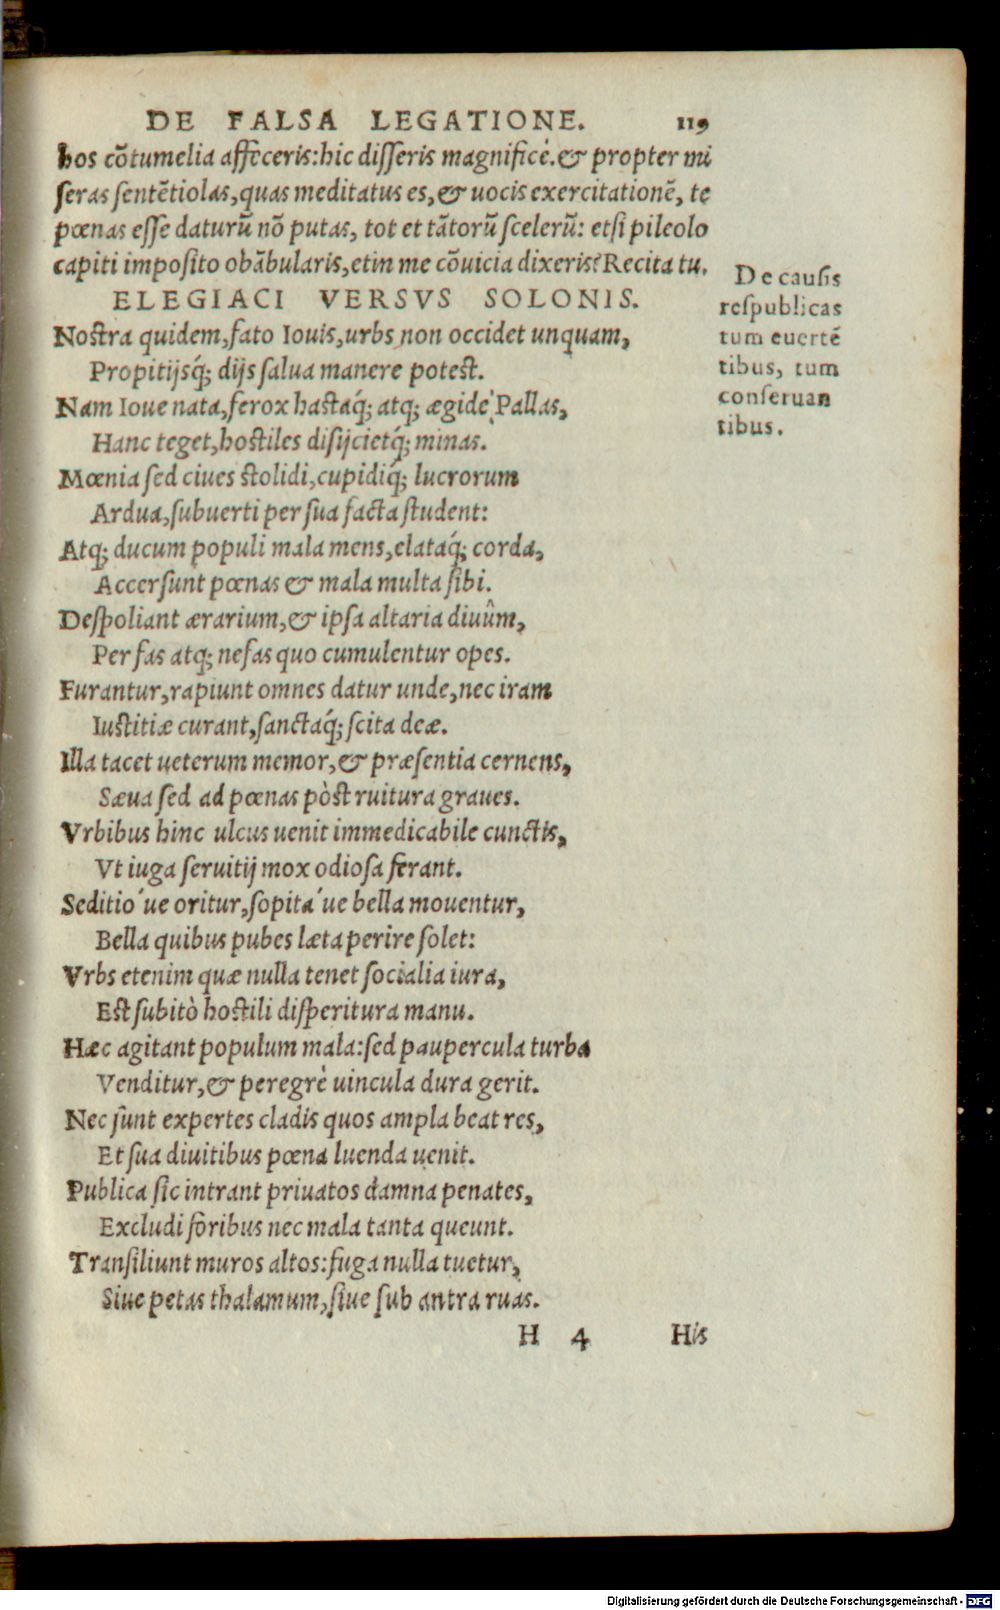 DE FALSA LEGATIONE. 119
hos cõtumelia affeceris:hic disseris magnificè.& propter mi
seras sentẽtiolas,quas meditatus es,& uocis exercitationẽ, te
pœnas esse daturũ nõ putas, tot et tãtorũ scelerũ: etsi pileolo
capiti imposito obãbularis,et in me cõuicia dixeris? Recita tu.
De causis
respublicas
tum euertẽ
tibus, tum
conseruan
tibus.
ELEGIACI VERSVS SOLONIS.
Nostra quidem,fato Iouis,urbs non occidet unquam,
Propitijsq́; dijs salua manere potest.
Nam Ioue nata,ferox hastaq́; atq; ægide Pallas,
Hanc teget,hostiles disijcietq́; minas.
Mœnia sed ciues stolidi,cupidiq́; lucrorum
Ardua,subuerti per sua facta student:
Atq; ducum populi mala mens,elataq́; corda,
Accersunt pœnas & mala multa sibi.
Despoliant ærarium,& ipsa altaria diuûm,
Per fas atq; nefas quo cumulentur opes.
Furantur,rapiunt omnes datur unde,nec iram
Iustitiæ curant,sanctaq́; scita deæ.
Illa tacet ueterum memor,& præsentia cernens,
Sæua sed ad pœnas pòst ruitura graues.
Vrbibus hinc ulcus uenit immedicabile cunctis,
Vt iuga seruitij mox odiosa ferant.
Seditio´ue oritur,sopita´ue bella mouentur,
Bella quibus pubes læta perire solet:
Vrbs etenim quæ nulla tenet socialia iura,
Est subitò hostili disperitura manu.
Hæc agitant populum mala:sed paupercula turba
Venditur,& peregrè uincula dura gerit.
Nec sunt expertes cladis quos ampla beat res,
Et sua diuitibus pœna luenda uenit.
Publica sic intrant priuatos damna penates,
Excludi foribus nec mala tanta queunt.
Transiliunt muros altos:fuga nulla tuetur,
Siue petas thalamum,siue sub antra ruas.
H 4 His
Digitalisierung gefördert durch die Deutsche Forschungsgemeinschaft - DFG